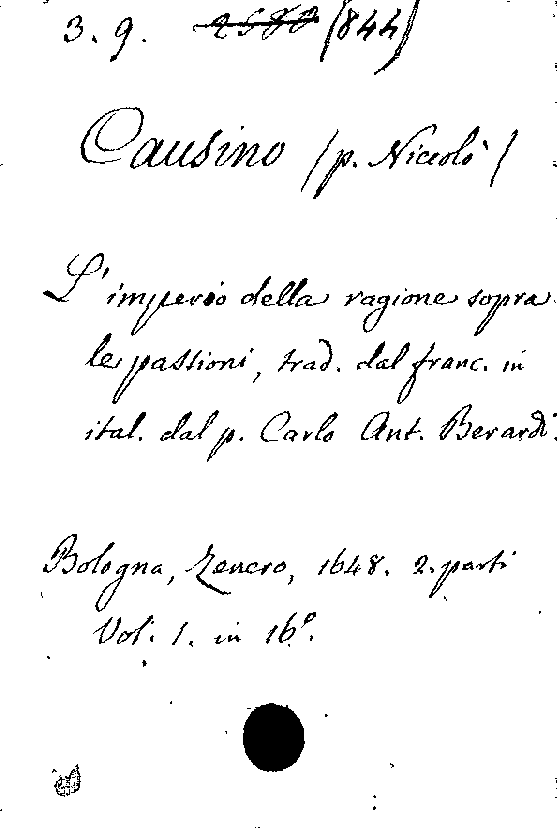 3. 9. 2580 (844)
Causino (p. Niccolò)
L'imperio della ragione sopra
le passioni, trad. dal franc. in
ital. dal p. Carlo Ant. Berardi.
Bologna, Zenero, 1648. 2. parti
Vol. 1. in 16º.